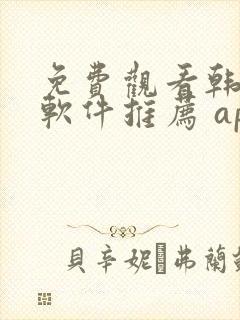 免費觀看韓
軟件推薦 ap
貝辛妮 弗蘭